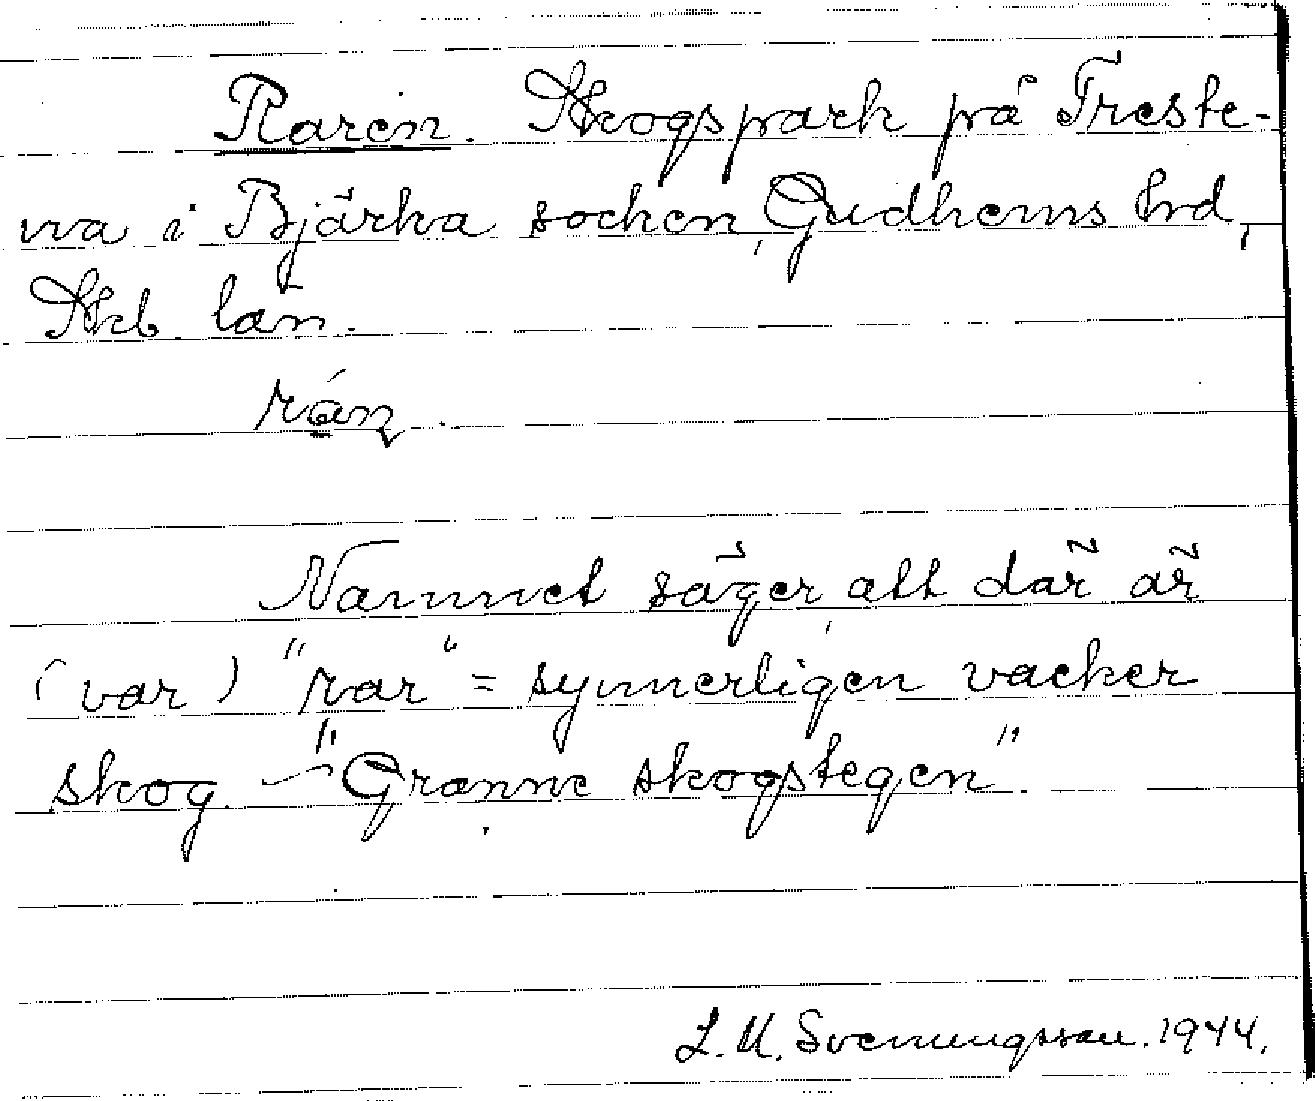 Raren. Skogspark på Treste-
na i Bjärka socken, Gudhems hrd,
Skb. län.
rán.
Namnet säger, att där är
(var) "rar" = synnerligen vacker
skog. - "Granne skogstegen".
L. M. Svenungsson. 1944.